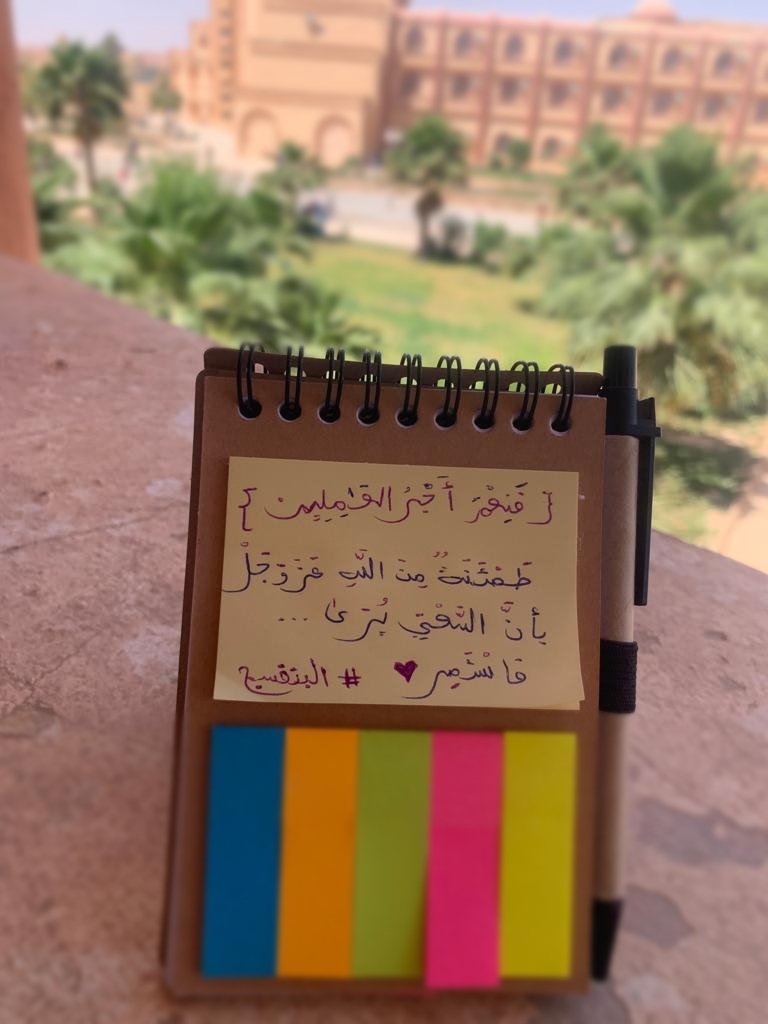 { فَنِعْمَ أَجْرُ العَامِلِين }
طَمْئَنَةٌ مِنَ اللَّهِ عَزَّوَجَلْ
بأنَّ السَّعْيَ يُرَىٰ ...
فاسْتَمِر ♥ # البنفسج